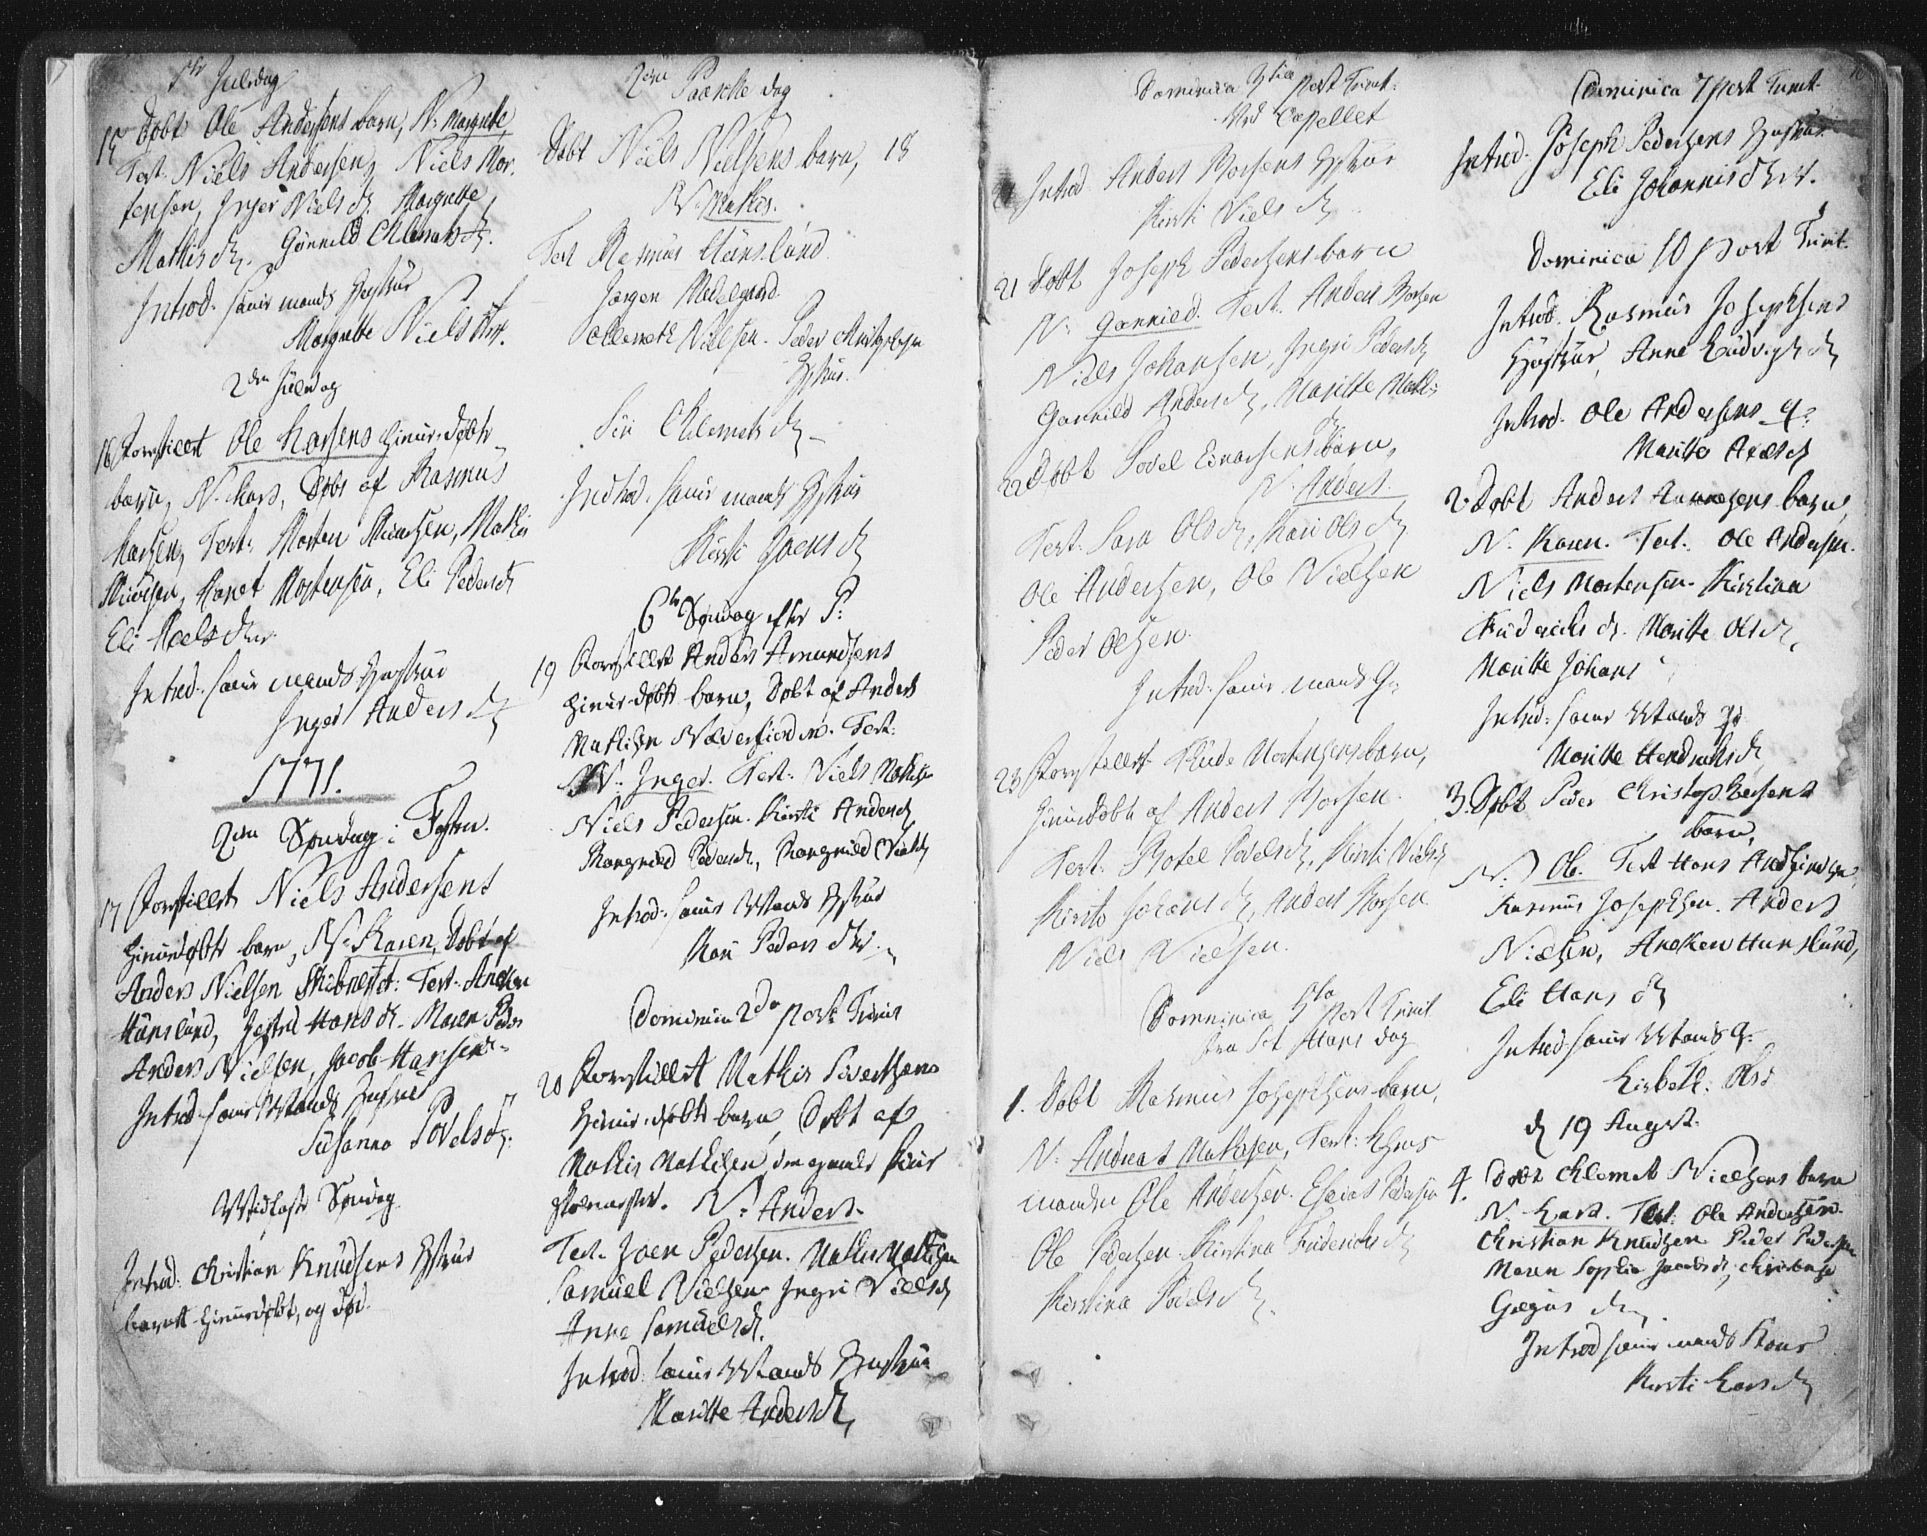 1ste Juledag
15 Døbt Ole Andersens barn, N: Margrete
Test. Niels Andersen, Niels Mor-
tensen, Inger Niels d. Margrette
Mathis d. Gunnild Clemets d.
Introd. samme mands Hustrue
Margrette Niels
2den Juledag
16 Forestillet Ole Larsens hiemmedøbte
barn, N. Lars, Døbt af Rasmus
Larsen, Test: Morten
Eli Peders d
Eli Poels dter
Introd. samme mands Hustrue
Inger Anders d
1771.
2den Søndag i Fasten.
17 Forestillet Niels Andersens
hiemmedøbte barn, N: Karen, Døbt af
Anders Nielsen Test. Anders
Hunslund, Hans d. Maren Peders
Anders Nielsen, Jacob Hansen
Introd. samme Mands Hustrue
Susanna Povels d.
Midfaste Søndag
Introd: Christian Knudsens Hustrue
barnet hiemmedøbt, og død.
2den Paaske dag
Døbt Niels Nielsens barn, 18
N: Mathis.
Test Rasmus Hunslund
Jørgen
Clemeth Nielsen. Peder Christophersen
Hustrue.
Siri Clemets d
Introd. samme mands Hustrue
Kirsti Joens d
6te Søndag efter P:
19 Forestillet Anders Amundsens
hiemmedøbte barn, Døbt af Anders
Mathisen Test:
N: Inger. Test: Niels Mathisen
Niels Pedersen. Kirsti Anders d
Rangnild Peders d., Rangnild Niels d
Introd. samme Mands Hustrue
Kari Peders dter
Dominica 2da post Trinit
20 Forestillet Mathis Sivertsens
hiemmedøbte barn, Døbt af
Mathis Mathisen den gamle
N: Anders.
Test. Joen Pedersen. Mathis Mathisen
Samuel Nielsen Ingri Niels d
Anne Samuels d.
Introd. samme Mands Hustrue
Maritte Anders d
Dominica 3tia post Trinit:
Ved Capellet
Introd Anders Borsens Hustrue
Kirsti Niels d
21 Døbt Joseph Pedersens barn
N: Gunnild. Test. Anders Borsen
Niels Johansen, Ingri Peders d
Gunnild Anders d, Maritte Math:
d
22 Døbt Povel Einarsens barn,
N. Anders.
Test: Sara Ols d, Kari Ols d
Ole Andersen, Ole Nielsen
Peder Olsen.
Introd. samme mands H:
23 Forestillet Knude Mortensens barn,
hiemmedøbt af Anders Borsen.
Test. Botel Povels d, Kirsti Niels d
Kirste Johans d, Anders Borsen
Niels Nielsen.
Dominica 5ta post Trinit
fra Sct Hans dag
1. Døbt Rasmus Josephsens barn,
N. Andreas Mathisen, Test: Lens-
manden Ole Andersen. Esaias Pedersen
Ole Pedersen Kirstina Friderichs d
Kirstina Povels d.
Dominica 7 post Trinit.
Introd. Joseph Pedersens Hustrue
Eli Johannis dter.
Dominica 10 post Trinit.
Introd. Rasmus Josephsens
Hustrue, Anne Ludvigs d
Introd. Ole Andersens H:
Maritte
2. Døbt Anders barn,
N. Karen. Test. Ole Andersen.
Niels Mortensen. Kirstina
Friderichs d. Maritte Ols d.
Maritte Johans
Introd: samme Mands H:
Maritte Hendrichs d
3. Døbt Peder Christophersens
barn,
N: Ole. Test Hans
Rasmus Josephsen. Anders
Nielsen, Anders Hunslund,
Eli Hans d
Introd. samme Mands H:
Lisbeth: Ols d
d 19 August.
4. Døbt Clemet Nielsens barn
N. Lars. Test: Ole Andersen.
Christian Knudsen Peder Pedersen
Maren Sophia Jacobs d,
Introd samme mands Kone
Kirsti Lars d